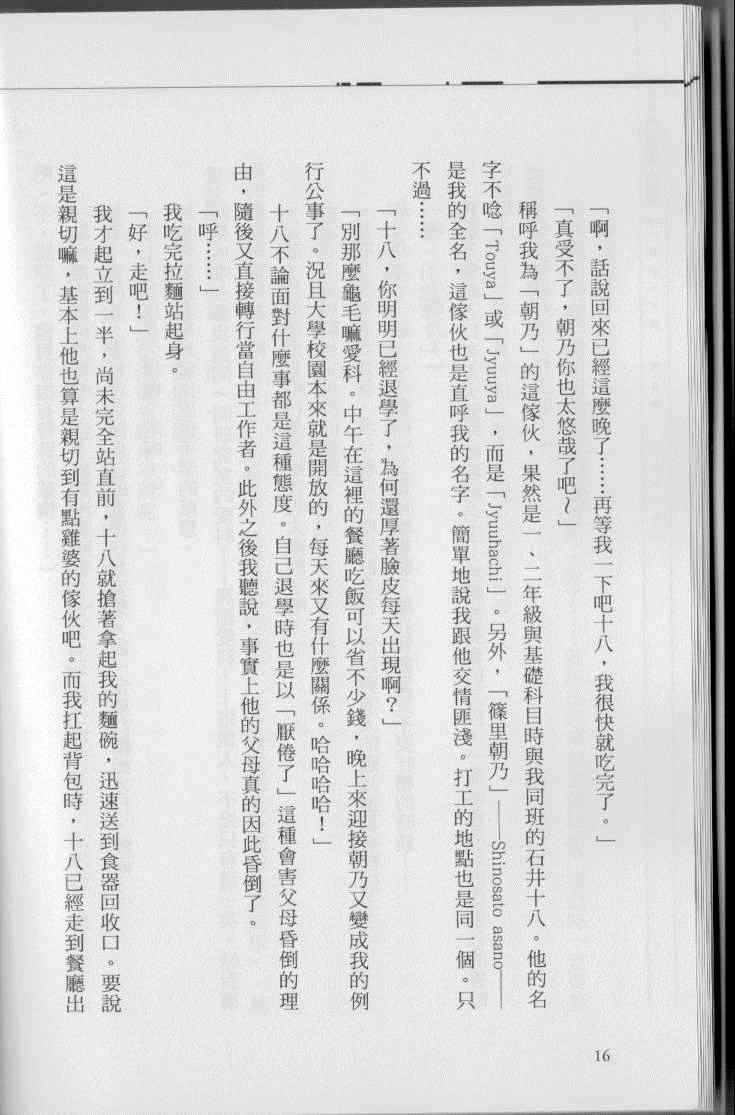 「啊，話說回來已經這麼晚了……再等我一下吧十八，我很快就吃完了。」
「真受不了，朝乃你也太悠哉了吧～」
稱呼我為「朝乃」的這傢伙，果然是一、二年級與基礎科目時與我同班的石井十八。他的名
字不唸「Touya」或「Jyuuya」，而是「Jyuuhachi」。另外，「篠里朝乃」——Shinosato asano——
是我的全名，這傢伙也是直呼我的名字。簡單地說我跟他交情匪淺。打工的地點也是同一個。只
不過……
「十八，你明明已經退學了，為何還厚著臉皮每天出現啊？」
「別那麼龜毛嘛愛科。中午在這裡的餐廳吃飯可以省不少錢，晚上來迎接朝乃又變成我的例
行公事了。況且大學校園本來就是開放的，每天來又有什麼關係。哈哈哈哈！」
十八不論面對什麼事都是這種態度。自己退學時也是以「厭倦了」這種會害父母昏倒的理
由，隨後又直接轉行當自由工作者。此外之後我聽說，事實上他的父母真的因此昏倒了。
「呼……」
我吃完拉麵站起身。
「好，走吧！」
我才起立到一半，尚未完全站直前，十八就搶著拿起我的麵碗，迅速送到食器回收口。要說
這是親切嘛，基本上他也算是親切到有點雞婆的傢伙吧。而我扛起背包時，十八已經走到餐廳出
16